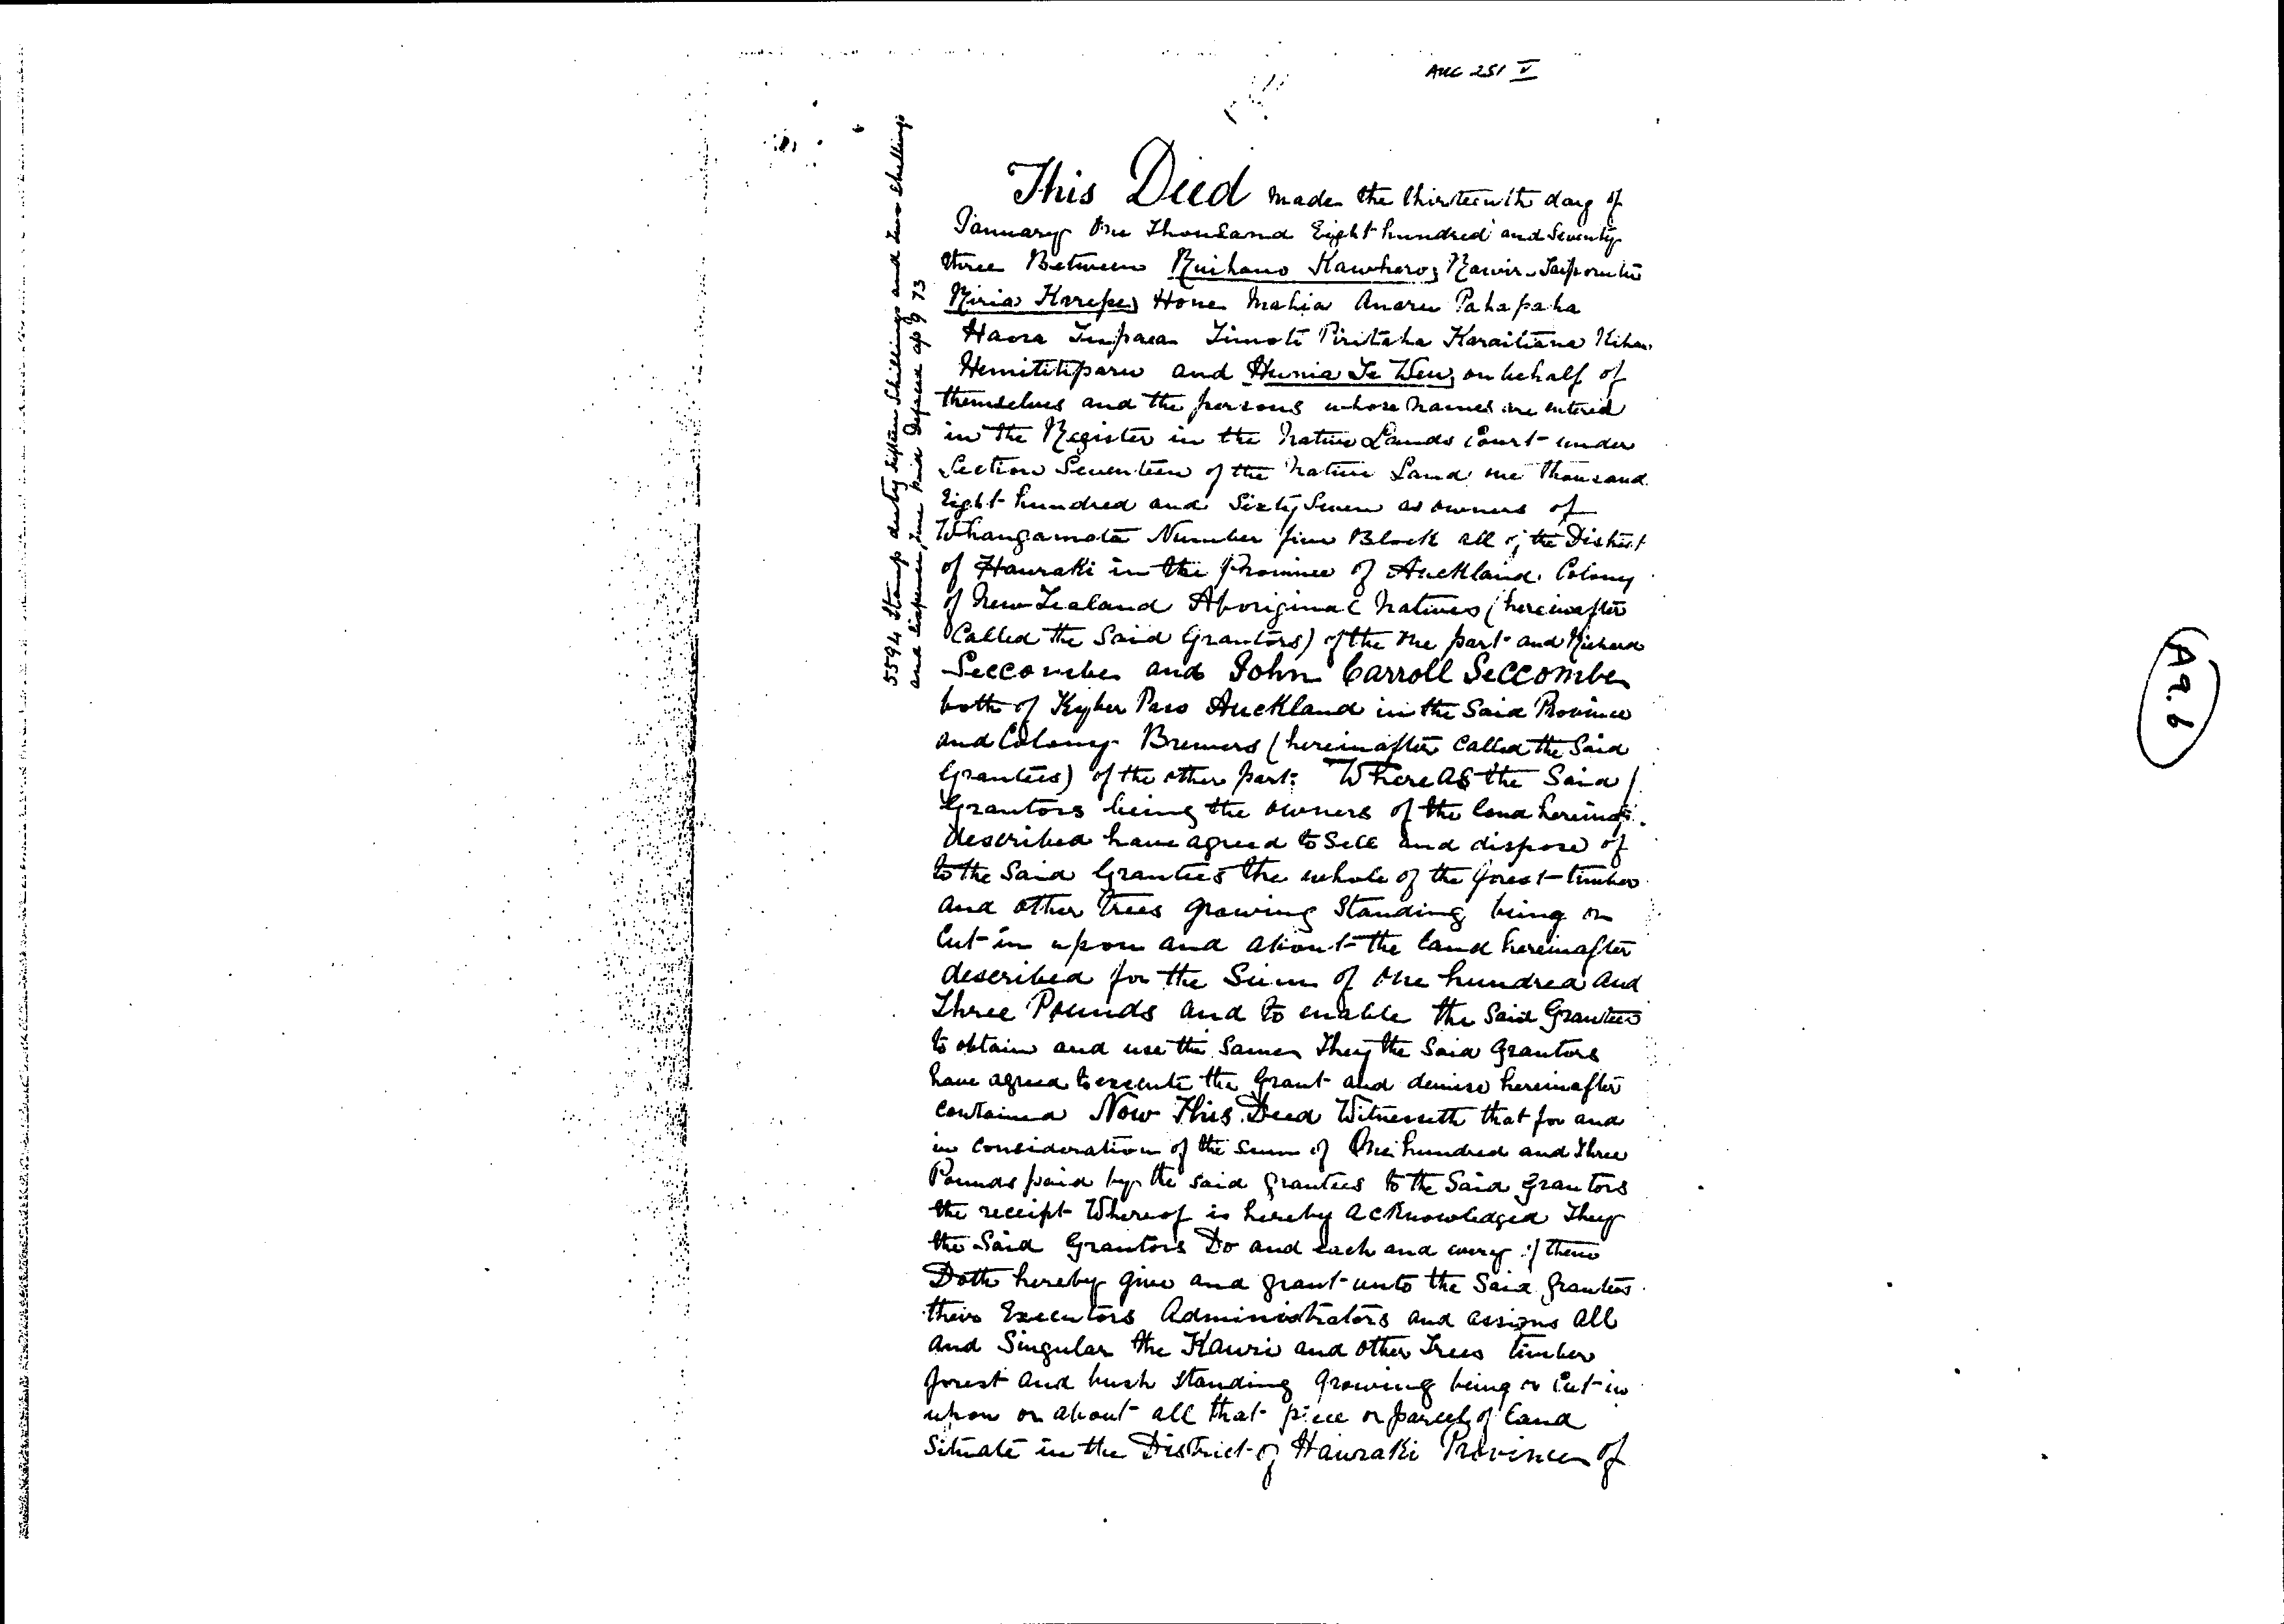 AUC 251 V
This Deed made the thirteenth day of
January One Thousand Eight hundred and Seventy
three Between Kawhero;
Miria Karepe, Hone Mahia Anaru Pahapaha
Haora Tupaea Timoti Piritaha Karaitiana Kihau
and Hunia Te Weu, on behalf of
themselves and the persons whose names are entered
in the Register in the Native Lands Court under
Section Seventeen of the Native Land one thousand
Eight hundred and Sixty Seven as owners of
Whangamata Number five Block all of the District
of Hauraki in the Province of Auckland Colony
of New Zealand Aboriginal Natives (hereinafter
Called the Said Grantors) of the one part and Richard
Seccombe and John Carroll Seccombe
both of Kyber Pass Auckland in the Said Province
and Colony Brewers (hereinafter Called the Said
Grantees) of the other part: Whereas the Said
Grantors being the owners of the land
described have agreed to Sell and dispose of
to the Said Grantees the whole of the forest timber
and other trees growing Standing being or
Cut in upon and about the land hereinafter
described for the Sum of One hundred and
Three Pounds and to enable the Said Grantees
to obtain and use the Same They the Said Grantors
have agreed to execute the Grant and demise hereinafter
Contained Now This Deed Witnesseth that for and
in Consideration of the sum of One hundred and Three
Pounds paid by the said grantees to the Said Grantors
the receipt Whereof is hereby acknowledged They
the Said Grantors Do and each and every of them
Doth hereby give and grant unto the Said grantees
their Executors Administrators and assigns all
and Singular the Kauri and other Trees timber
forest and bush Standing growing being or Cut in
upon or about all that piece or parcel of land
Situate in the District of Hauraki Province of
5594 Stamp duty fifteen Shillings and two Shillings
and paid 9 73
A9.6